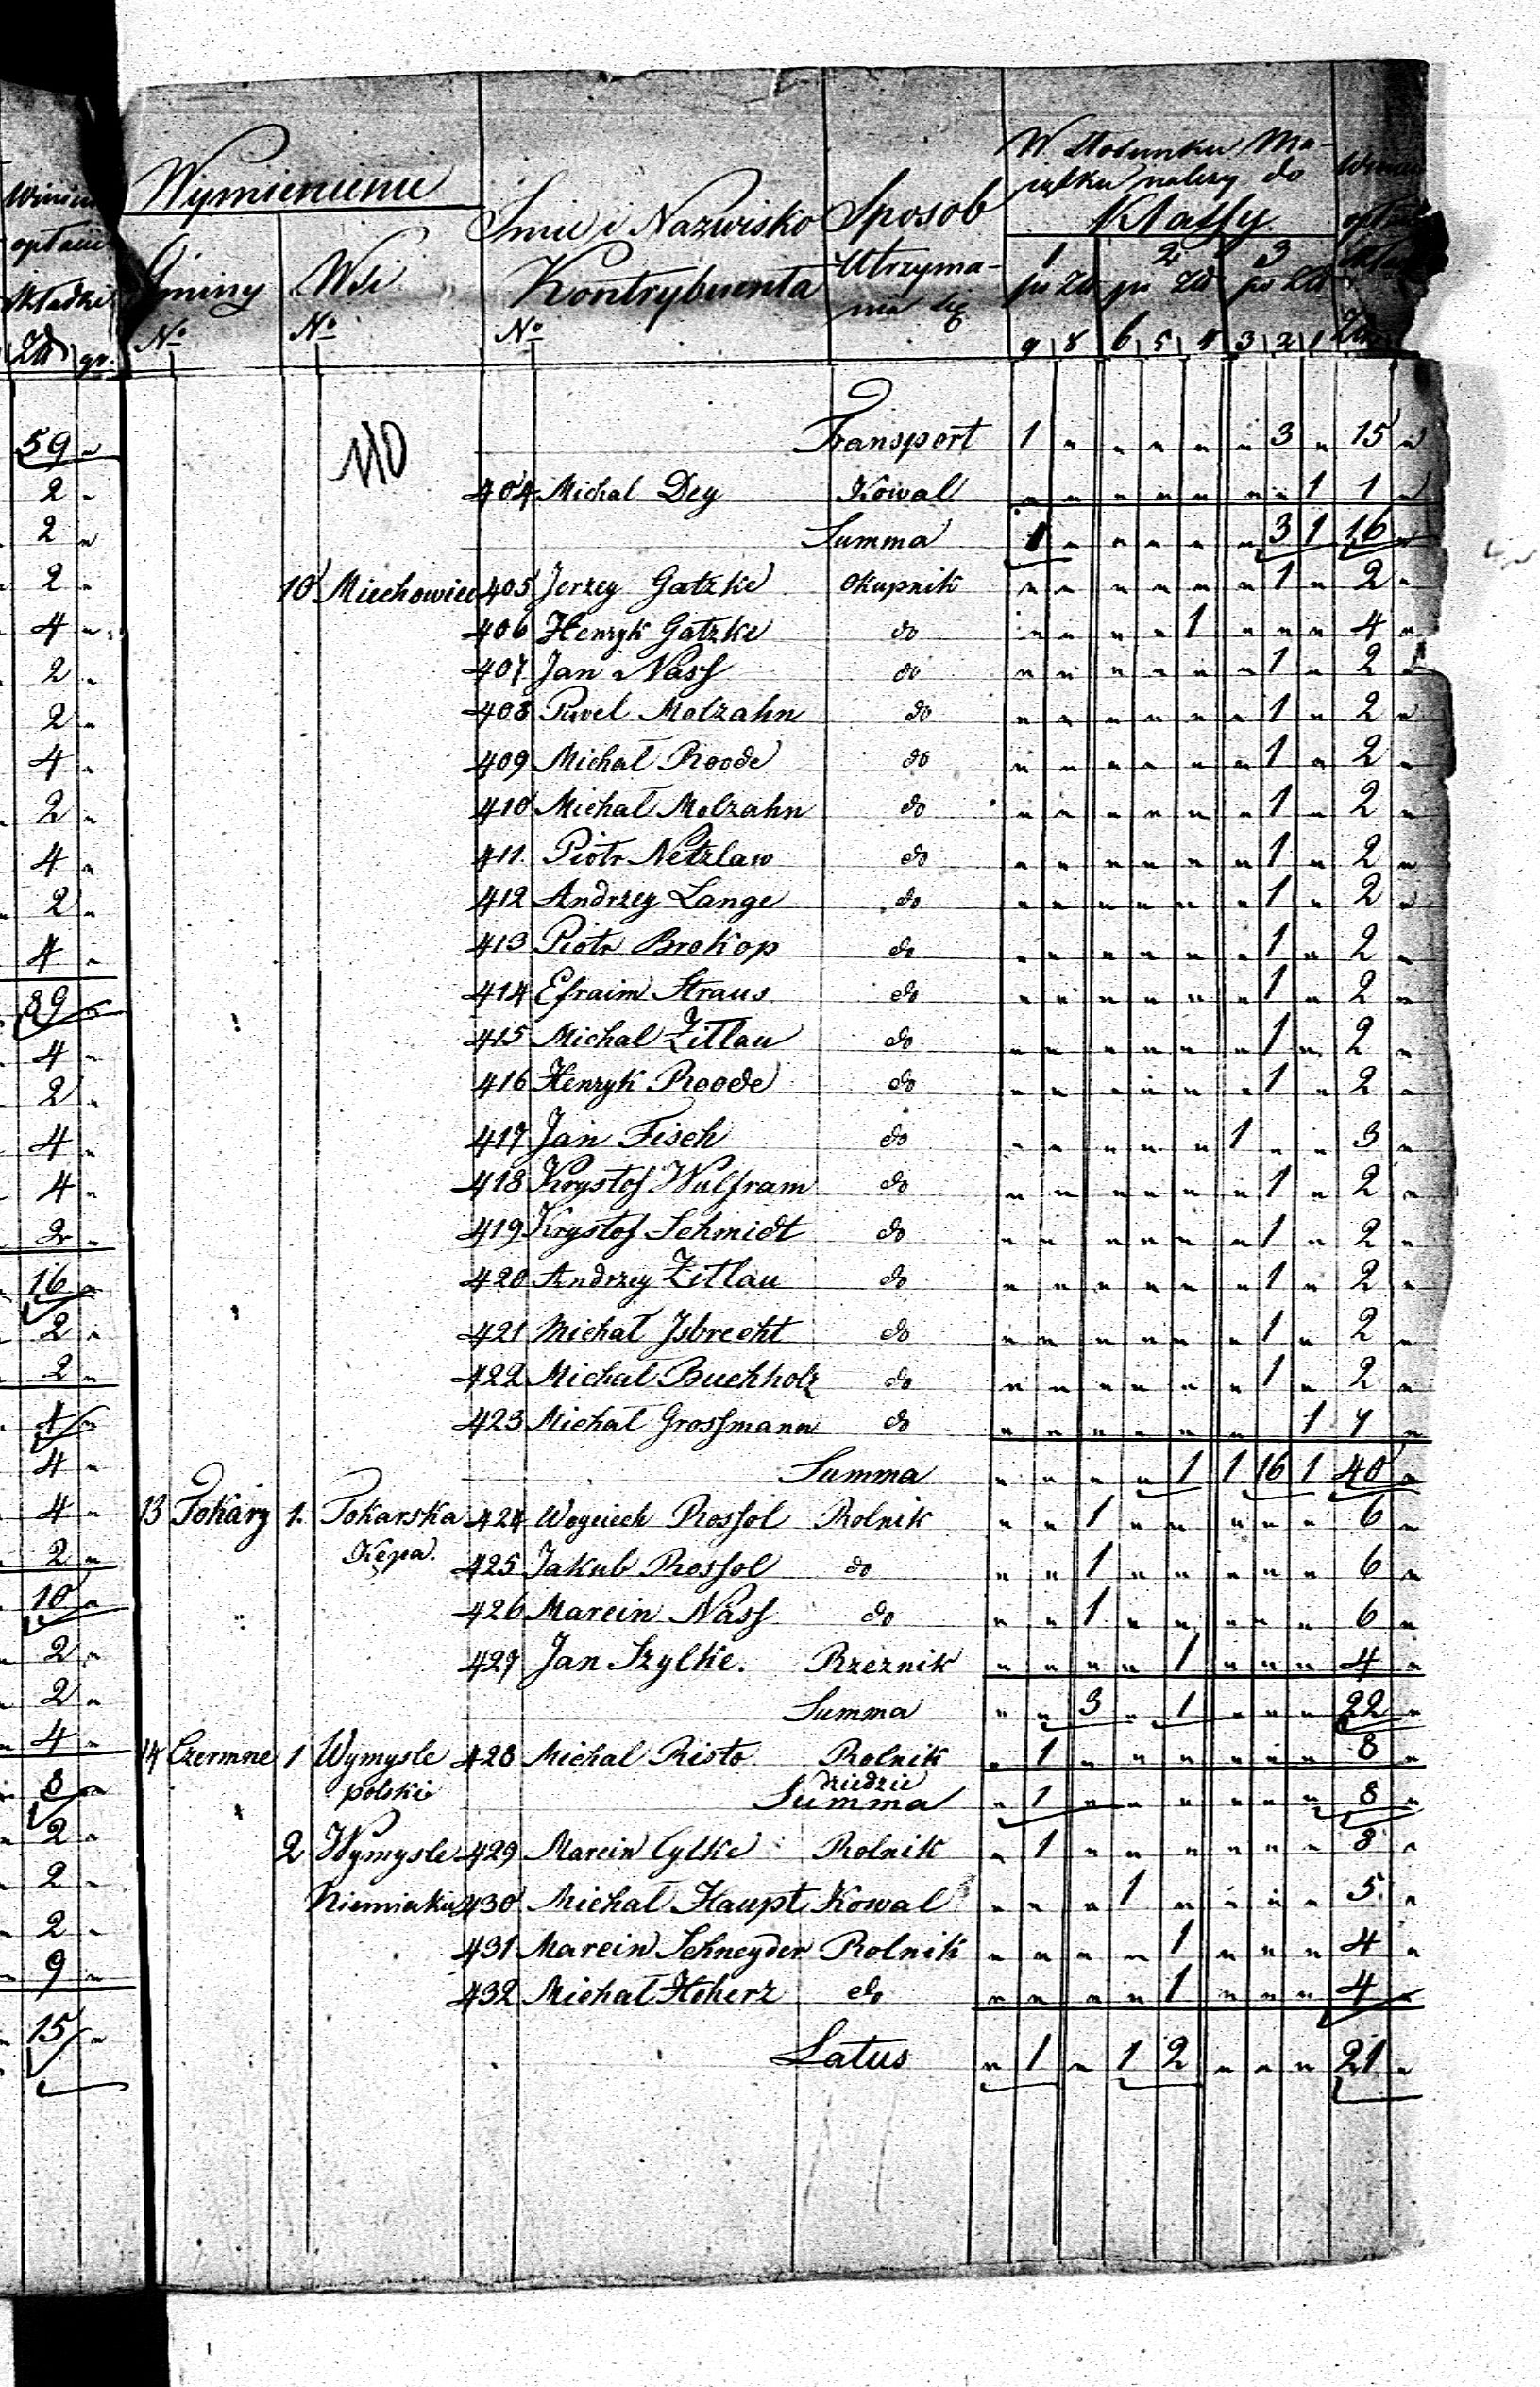 Winien
opłacić
składki
Zł gr.
59 "
2 "
2 "
2 "
4 "
2 "
2 "
4 "
2 "
4 "
2 "
4 "
89 "
4 "
2 "
4 "
4 "
2 "
16 "
2 "
2 "
4 "
4 "
4 "
2 "
10 "
2 "
2 "
4 "
8 "
2 "
2 "
2 "
9 "
15 "
Wymienienie
Gminy Wsi
No No
Imie i Nazwisko
Kontrybuenta
No
Sposob
Utrzyma-
nia się
W Stosunku Ma-
iątku należy do
Klassy
1 2 3
po Zł po Zł po Zł
9 8 6 5 4 3 2 1
110
Transport 1 " " " " " 3 " 15 "
404 Michal Dey Kowal " " " " " " " 1 1 "
Summa 1 " " " " " 3 1 16 "
10 Miechowice 405 Jerzey Gatzke okupnik " " " " " " 1 " 2 "
406 Henryk Gatzke do " " " " 1 " " " 4 "
407 Jan Nass do " " " " " " 1 " 2 "
408 Pawel Molzahn do " " " " " " 1 " 2 "
409 Michał Roode do " " " " " " 1 " 2 "
410 Michał Molzahn do " " " " " " 1 " 2 "
411. Piotr Netzlaw do " " " " " " 1 " 2 "
412 Andrzey Lange do " " " " " " 1 " 2 "
413 Piotr Brokop do " " " " " " 1 " 2 "
414 Efraim Straus do " " " " " " 1 " 2 "
415 Michal Zitlau do " " " " " " 1 " 2 "
416 Henryk Roode do " " " " " " 1 " 2 "
417 Jan Fisch do " " " " " 1 " " 3 "
418 Krystof Wulfram do " " " " " " 1 " 2 "
419 Krystof Schmidt do " " " " " " 1 " 2 "
420 Andrzey Zitlau do " " " " " " 1 " 2 "
421 Michał Isbrecht do " " " " " " 1 " 2 "
422 Michał Buchholz do " " " " " " 1 " 2 "
423 Michał Grossmann do " " " " " " " 1 1 "
Summa " " " " 1 1 16 1 40 "
13 Tokary 1. Tokarska 424 Woyciech Rossol Rolnik " " 1 " " " " " 6 "
Kępa. 425 Jakub Rossol do " " 1 " " " " " 6 "
426 Marcin Nass do " " 1 " " " " " 6 "
427 Jan Szylke. Rzeznik " " " " 1 " " " 4 "
Summa " " 3 " 1 " " " 22 "
14 Czermne 1 Wymysle 428 Michal Risto Rolnik " 1 " " " " " " 8 "
polskie dziedzic
Summa " 1 " " " " " " 8 "
2 Wymysle 429 Marcin Cylke Rolnik " 1 " " " " " " 8 "
Niemieckie 430 Michał Haupt Kowal " " " 1 " " " " 5 "
431 Marcin Schneyder Rolnik " " " " 1 " " " 4 "
432 Michał Hoherz do " " " " 1 " " " 4 "
Latus " 1 " 1 2 " " " 21 "